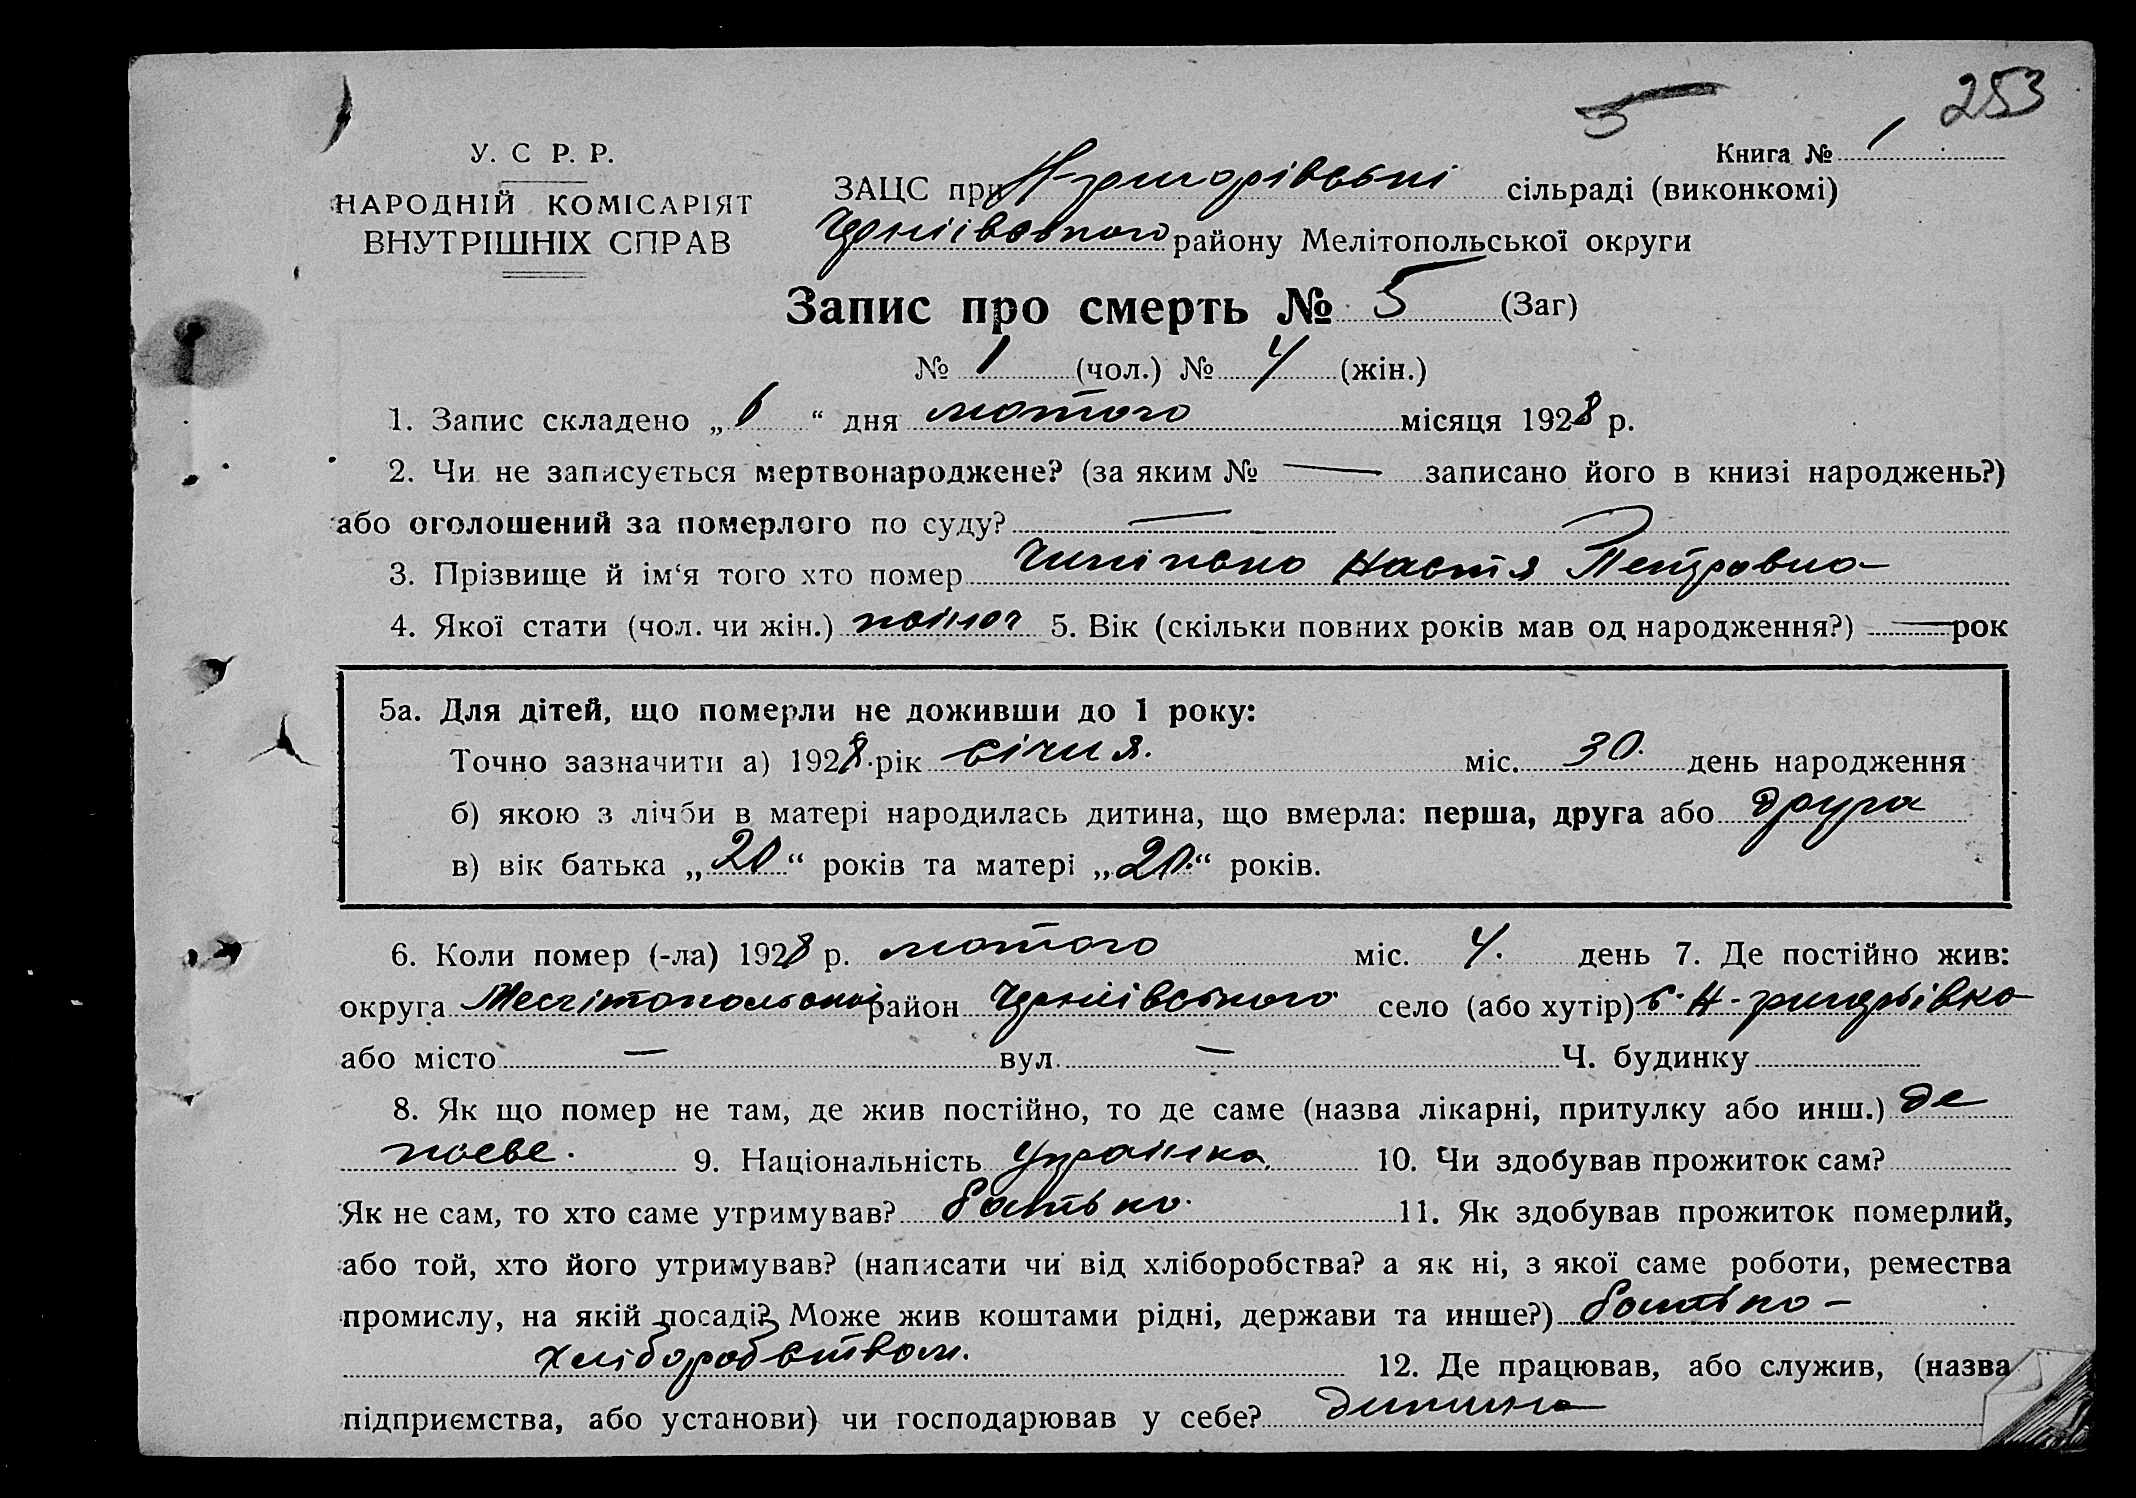 5 253
У. С Р. Р.
Книга № 1
НАРОДНІЙ КОМІСАРІЯТ
ВНУТРІШНІХ СПРАВ
ЗАЦС при Н-григорівські сільраді (виконкомі)
Черніівського району Мелітопольської округи
Запис про смерть № 5 (Заг)
№ 1 (чол.) № 4 (жін.)
1. Запис складено „6“ дня лютого місяця 1928 р.
2. Чи не записується мертвонароджене? (за яким № — записано його в книзі народжень?)
або оголошений за померлого по суду? —
3. Прізвище й ім‘я того хто помер Настя Петровна
4. Якої стати (чол. чи жін.) жіноч 5. Вік (скільки повних років мав од народження?) — рок
5а. Для дітей, що померли не доживши до 1 року:
Точно зазначити а) 1928 рік січня. міс. 30. день народження
б) якою з лічби в матері народилась дитина, що вмерла: перша, друга або друга
в) вік батька „20“ років та матері „20.“ років.
6. Коли помер (-ла) 1928 р. лютого міс. 4. день 7. Де постійно жив:
округа Мелітопольської район Чернівського село (або хутір) с. Н-григорівка
або місто — вул. — Ч. будинку
8. Як що помер не там, де жив постійно, то де саме (назва лікарні, притулку або инш.) де
жеве. 9. Національність Українка. 10. Чи здобував прожиток сам?
Як не сам, то хто саме утримував? батько. 11. Як здобував прожиток померлий,
або той, хто його утримував? (написати чи від хліборобства? а як ні, з якої саме роботи, ремества
промислу, на якій посаді? Може жив коштами рідні, держави та инше?) батько -
хліборобством. 12. Де працював, або служив, (назва
підприємства, або установи) чи господарював у себе? дитина